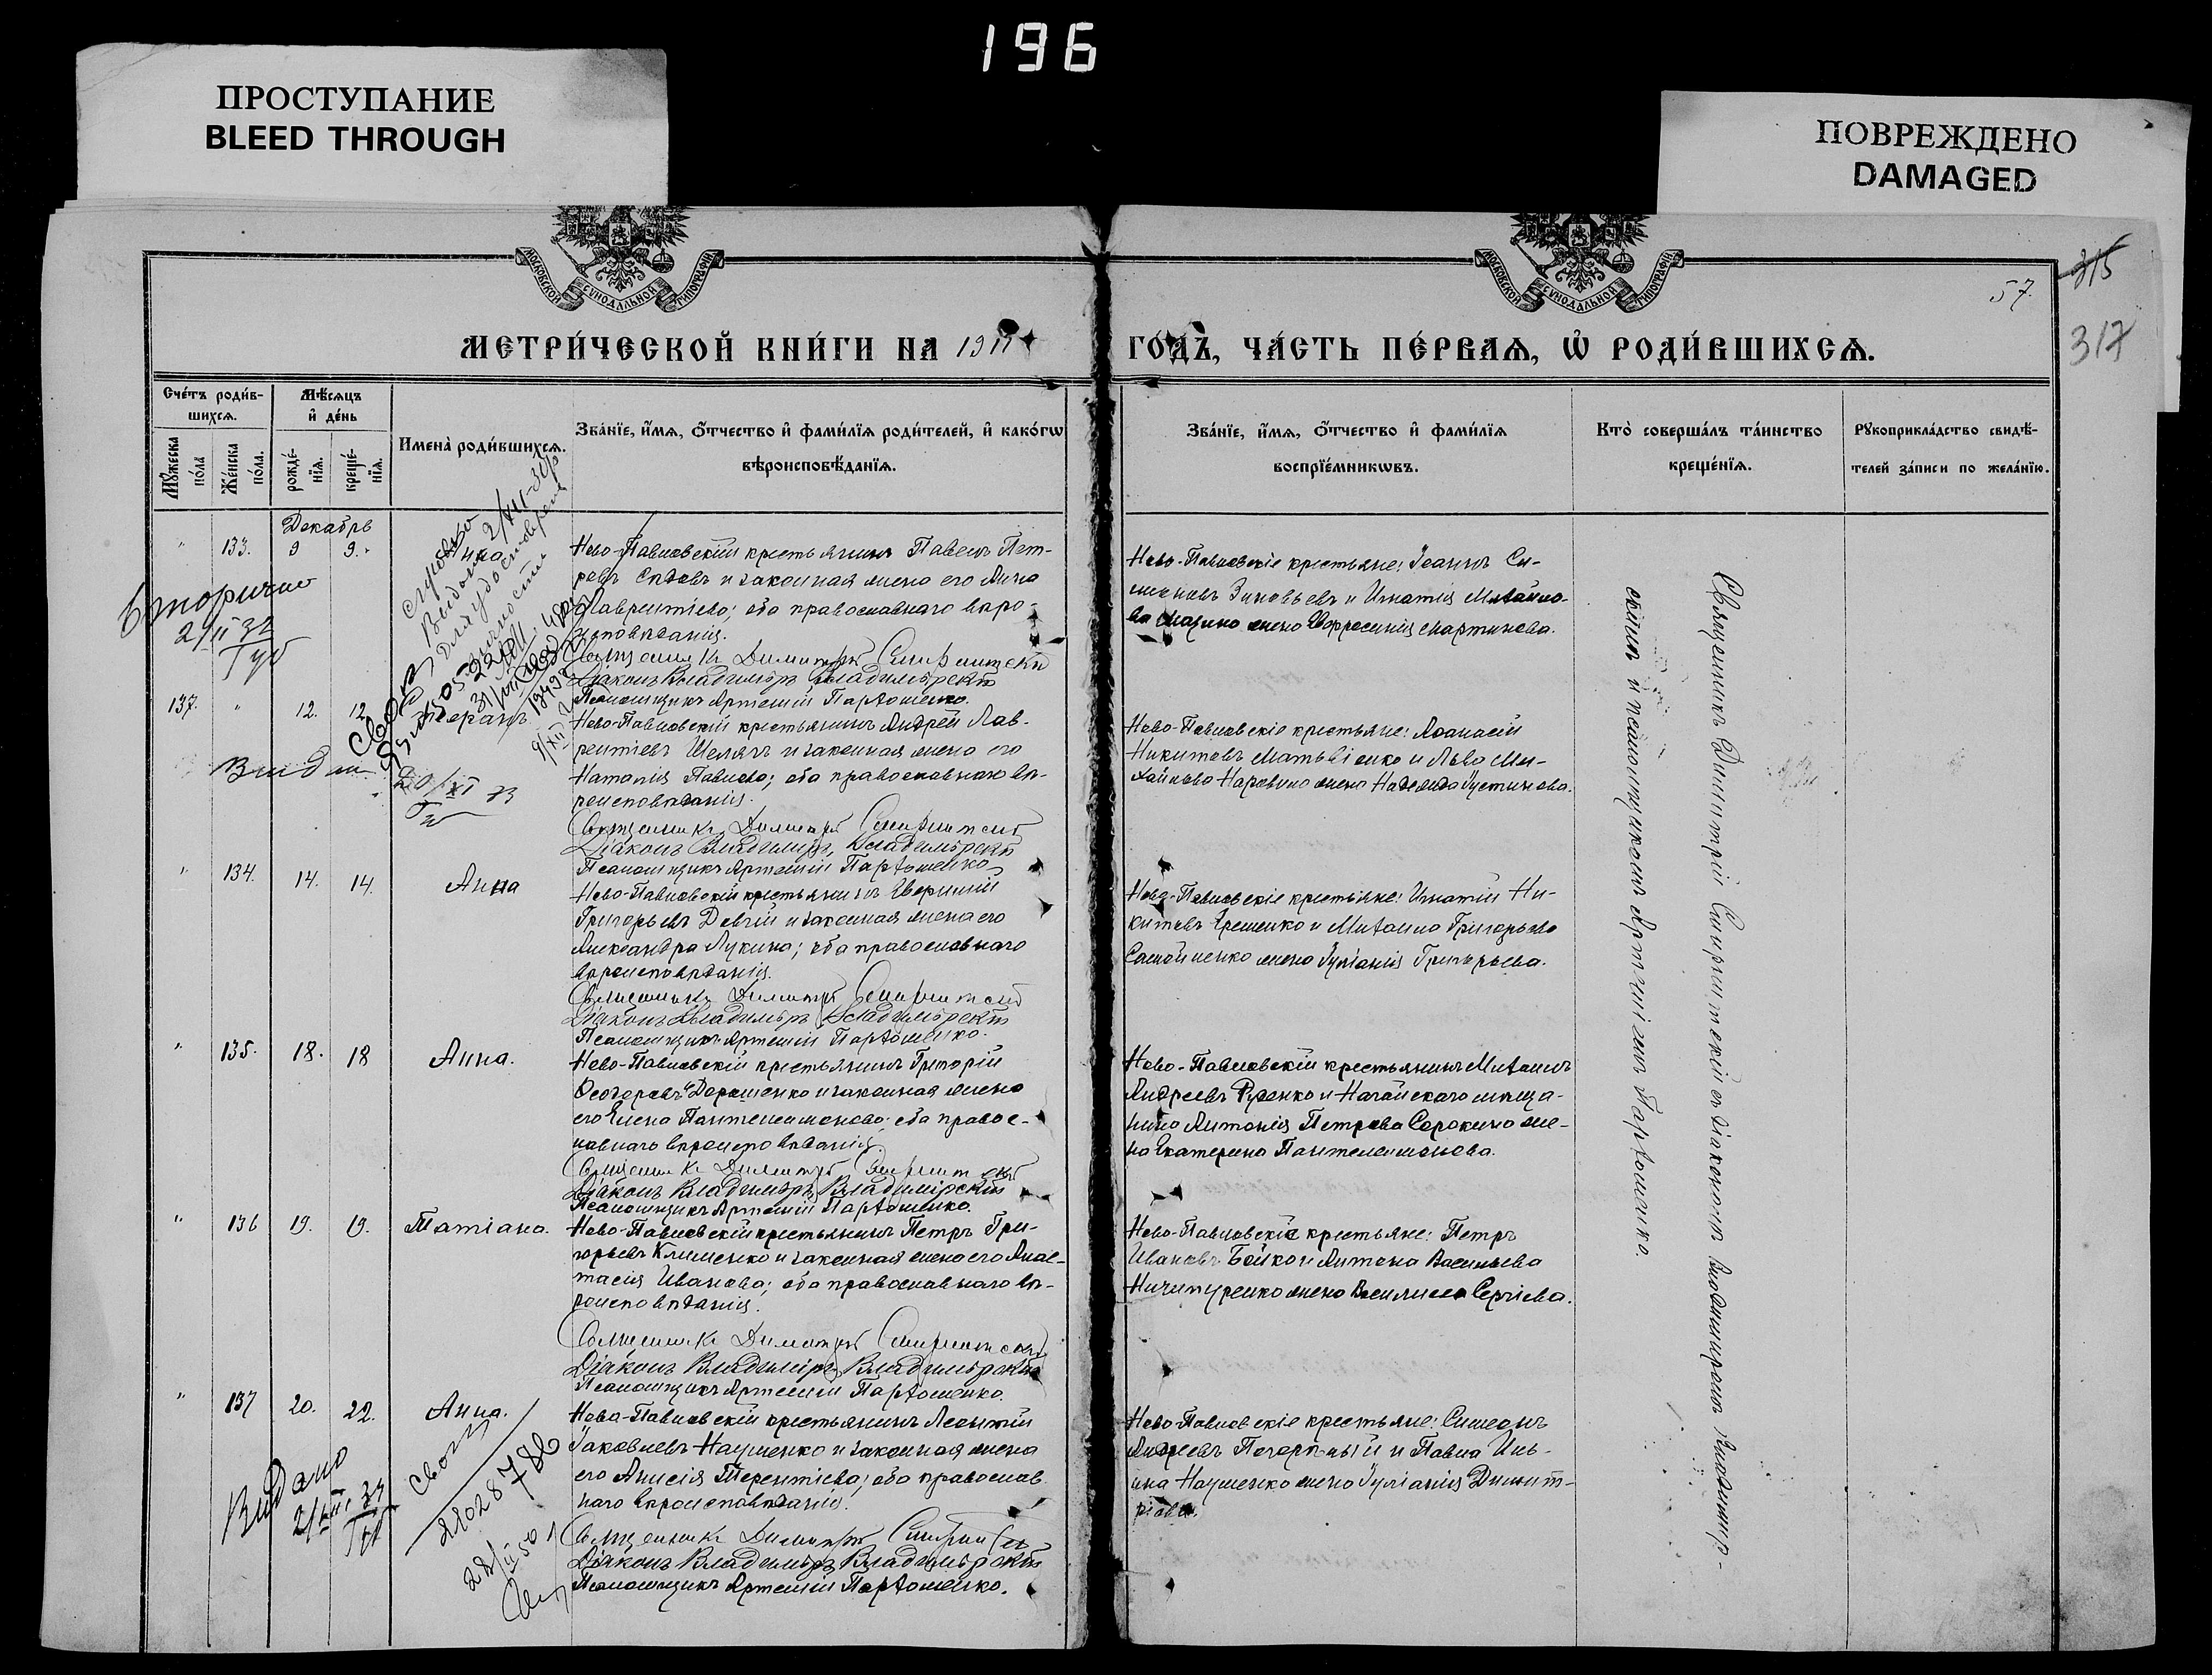 196
ПРОСТУПАНИЕ
BLEED THROUGH
ПОВРЕЖДЕНО
DAMAGED
МОСКОВСКОЙ СѴНОДАЛЬНОЙ ТИПОГРАФІИ
МОСКОВСКОЙ СѴНОДАЛЬНОЙ ТИПОГРАФІИ
57.
315
317
МЕТРИ́ЧЕСКОЙ КНИ́ГИ НА 1911
ГО́ДЪ, ЧА́СТЬ ПЕ́РВАѦ, Ѡ҆ РОДИ́ВШИХСѦ.
Сче́тъ роди́в-
шихсѧ.
Мꙋ́жеска
по́ла
Же́нска
по́ла.
Мѣ́сѧцъ
и҆ де́нь
рожде́-
нїѧ.
креще́-
нїѧ.
Имена̀ роди́вшихсѧ.
Зва́нїе, и҆́мѧ, ѻ҆́тчество и҆ фами́лїѧ роди́телей, и҆ како́гѡ
вѣроисповѣ́данїѧ.
Зва́нїе, и҆́мѧ, ѻ҆́тчество и҆ фами́лїѧ
воспрїе́мникѡвъ.
Кто̀ соверша́лъ та́инство
креще́нїѧ.
Рꙋкоприкла́дство свидѣ́-
телей за́писи по жела́нїю.
Декабрь
" 133. 9 9.
Ново-Павловскій крестьянинъ Павелъ Пет-
ровъ Сѣдовъ и законная жена его Анна
Лаврентіева; оба православнаго вѣро-
исповѣданія.
Священникъ Димитрій Спиритскій
Діаконъ Владиміръ Владимірскій
Псаломщикъ Артемій Пархоменко.
Ново-Павловскіе крестьяне: Іоаннъ Си-
меоновъ Зиновьевъ и Игнатія Михайло-
ва жена Евфросинія Мартинова.
Вторично
2/II 32
137. " 12. 12
Ново-Павловскій крестьянинъ Андрей Лав-
рентіевъ Шелягъ и законная жена его
Наталія Павлова; оба православнаго вѣ-
роисповѣданія.
Священникъ Димитрій Спиритскій
Діаконъ Владиміръ Владимірскій
Псаломщикъ Артемій Пархоменко
Ново-Павловскіе крестьяне: Аѳанасій
Никитовъ Матвіенко и Льва Ми-
хайлова жена Надежда Іустинова.
20/XI
" 134. 14. 14. Анна
Ново-Павловскій крестьянинъ
Григорьевъ Девгій и законная жена его
Александра Лукина; оба православнаго
вѣроисповѣданія.
Священникъ Димитрій Спиритскій
Діаконъ Владиміръ Владимірскій
Псаломщикъ Артемій Пархоменко.
Ново-Павловскіе крестьяне: Игнатій Ни-
китовъ Ерешенко и Михаила Григорьева
Самойленко жена Іуліанія Григорьева.
" 135. 18. 18 Анна.
Ново-Павловскій крестьянинъ Григорій
Ѳеодоровъ Дорошенко и законная жена
его Елена Пантелеимонова; оба правос-
лавнаго вѣроисповѣданія.
Священникъ Димитрій Спиритскій
Діаконъ Владиміръ Владимірскій
Псаломщикъ Артемій Пархоменко.
Ново-Павловскій крестьянинъ Михаилъ
Андреевъ Руденко и Ногайскаго мѣща-
нина Антонія Петрова Сорокина же-
на Екатерина Пантелеимонова.
" 136 19. 19. Татіана.
Ново-Павловскій крестьянинъ Петръ Гри-
горьевъ Клименко и законная жена его Анас-
тасія Иванова; оба православнаго вѣ-
роисповѣданія.
Священникъ Димитрій Спиритскій
Діаконъ Владиміръ Владимірскій
Псаломщикъ Артемій Пархоменко.
Ново-Павловскіе крестьяне: Петръ
Ивановъ Бойко и Антона Васильева
Ничипуренко жена Василиса Сергіева.
" 137 20. 22. Анна.
Ново-Павловскій крестьянинъ Леонтій
Іаковлевъ Науменко и законная жена
его Анисія Терентіева; оба православ
наго вѣроисповѣданія.
Священникъ Димитрій
Діаконъ Владиміръ Владимірскій
Псаломщикъ Артемій Пархоменко.
Ново-Павловскіе крестьяне: Симеонъ
Андреевъ Печерный и Павла Иль-
ина Науменко жена Іуліанія Димит-
ріева.
Видано
Священникъ Димитрій Спиритскій съ діакономъ Владиміромъ Владимір-
скимъ и псаломщикомъ Артеміемъ Пархоменко.